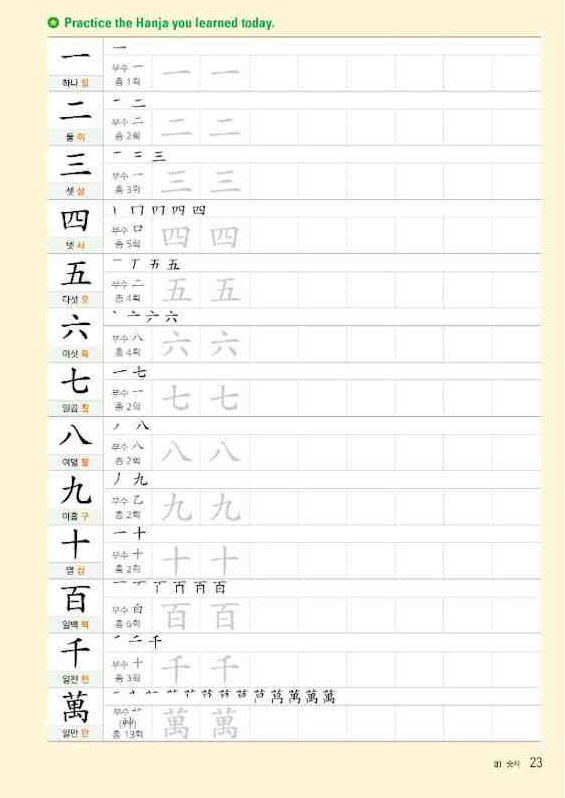 Practice the Hanja you learned today.
一
一
부수 一
총 1획
一 一
하나 일
二
一 二
부수 二
총 2획
二 二
둘 이
三
一 二 三
부수 一
총 3획
三 三
셋 삼
四
丨 冂 四
부수 口
총 5획
四 四
넷 사
五
一 丁 五 五
부수 二
총 4획
五 五
다섯 오
六
丶 亠 六 六
부수 八
총 4획
六 六
여섯 육
七
一 七
부수 一
총 2획
七 七
일곱 칠
八
丿 八
부수 八
총 2획
八 八
여덟 팔
九
丿 九
부수 乙
총 2획
九 九
아홉 구
十
一 十
부수 十
총 2획
十 十
열 십
百
一 百
부수 白
총 6획
百 百
일백 백
千
丿 二 千
부수 十
총 3획
千 千
일천 천
萬
萬 萬 萬
부수 艹
(艸)
총 13획
萬 萬
일만 만
01 숫자 23